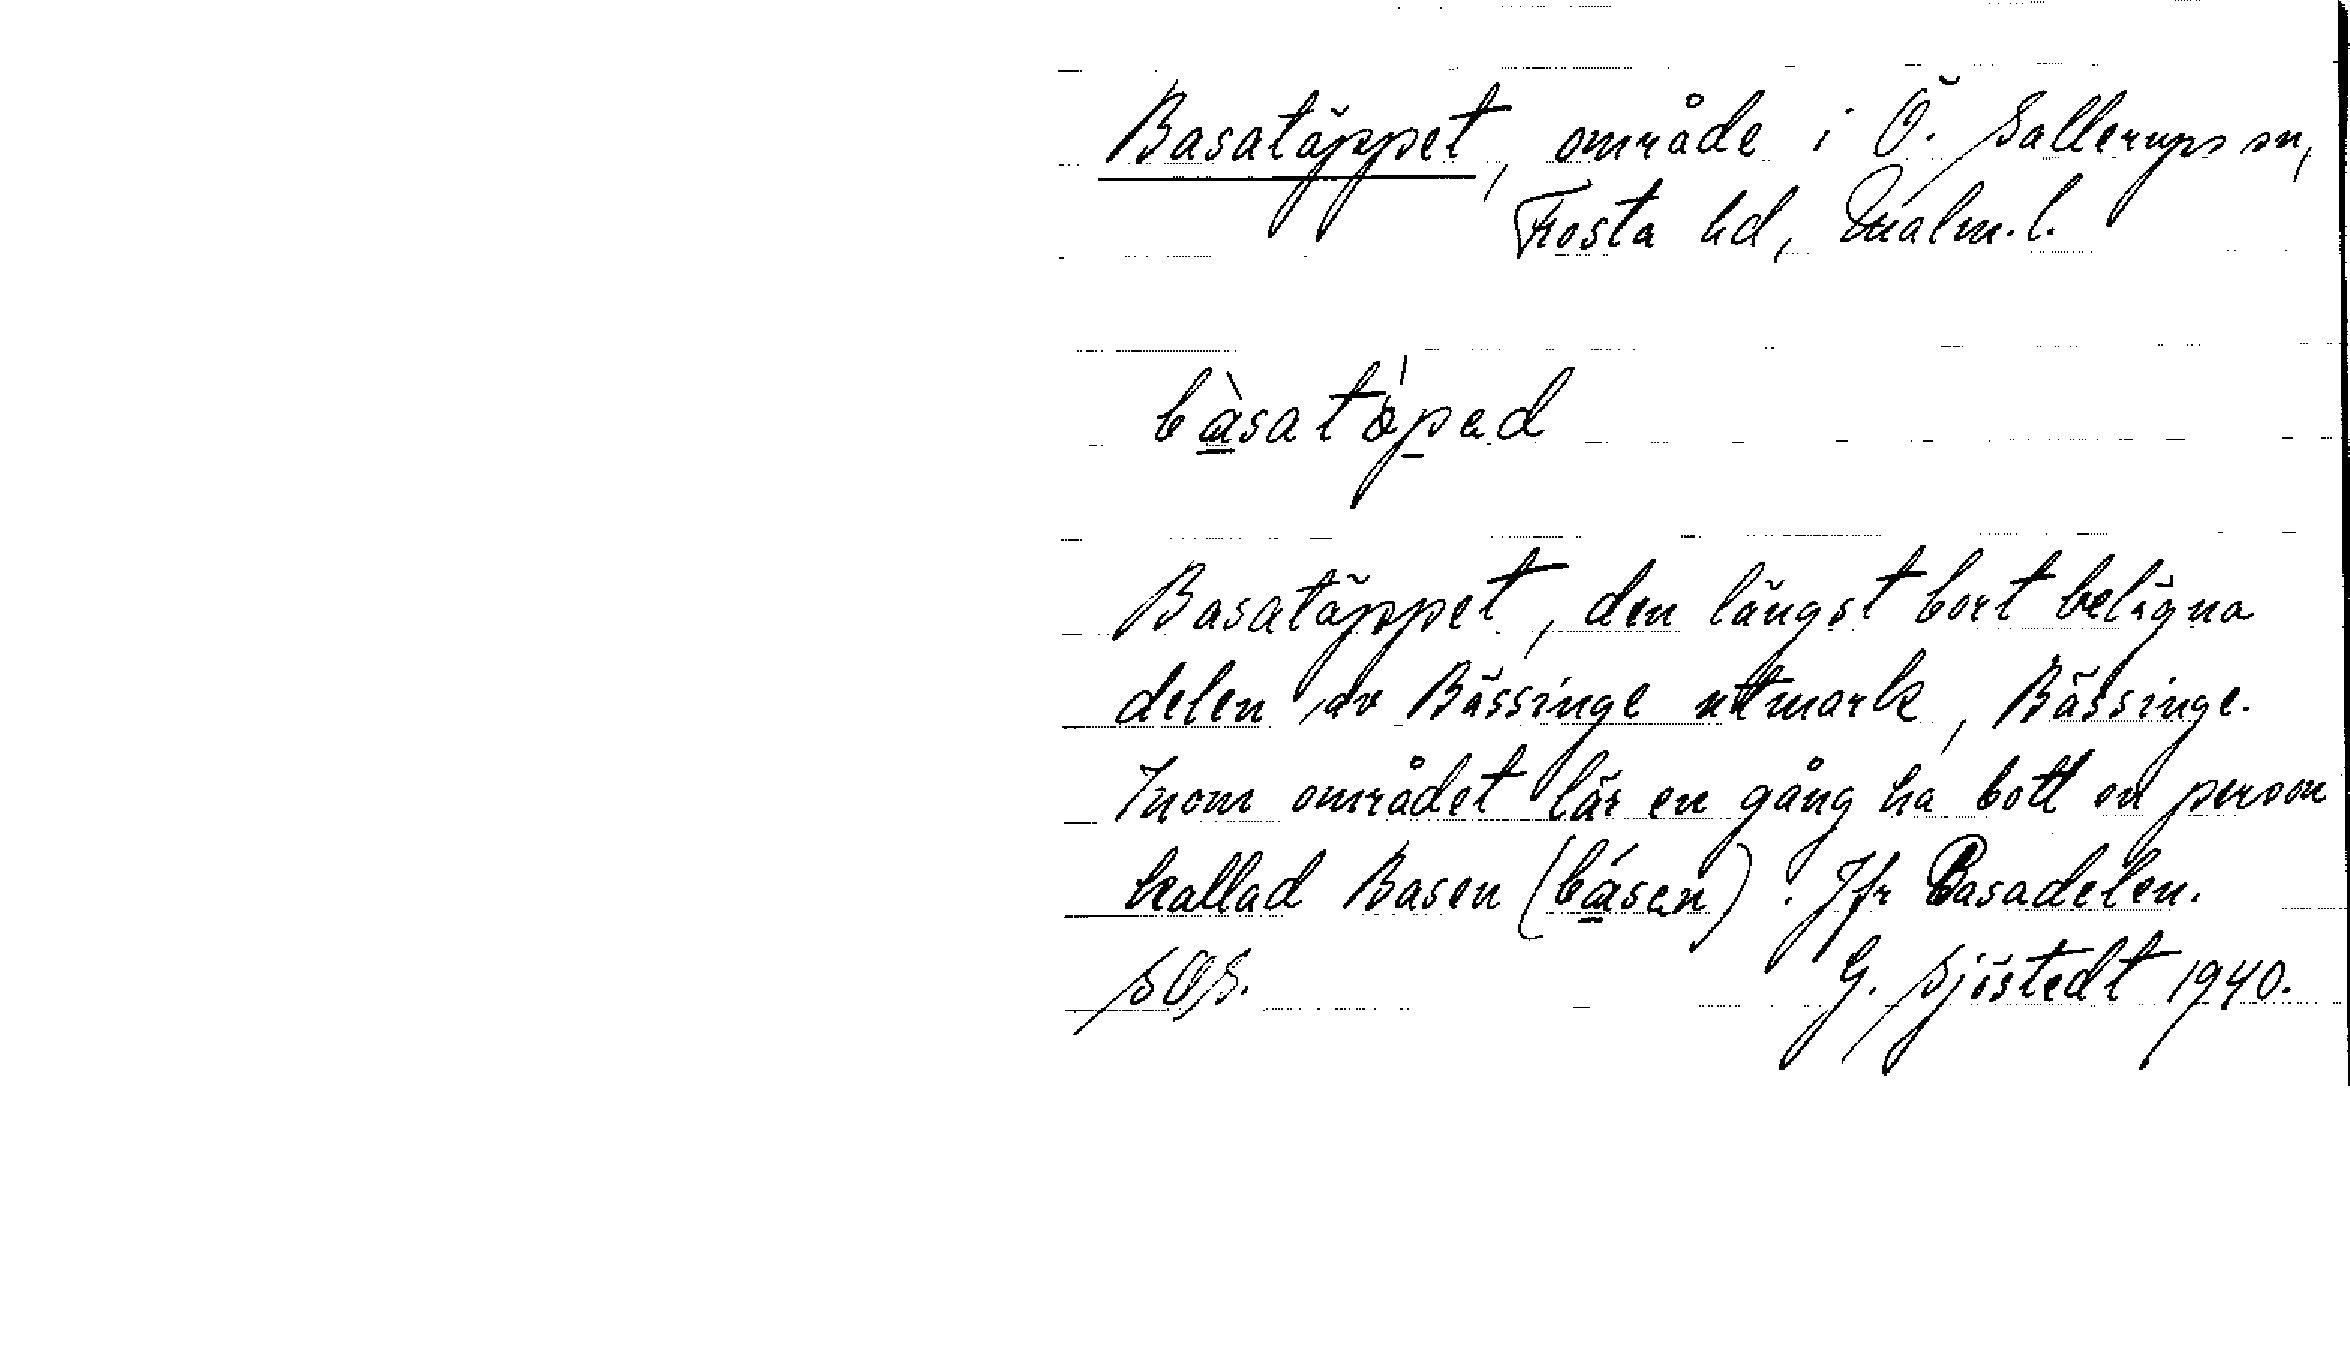 Basatäppet, område i Ö. Sallerups sn,
Frosta hd, Malm.l.
bàsatäped
Basatäppet, den längst bort belägna
delen av Bässinge utmark, Bässinge.
Inom området lär en gång ha bott en person
kallad Basen (básen). Jfr Basadelen.
SOS. G. Sjöstedt 1940.